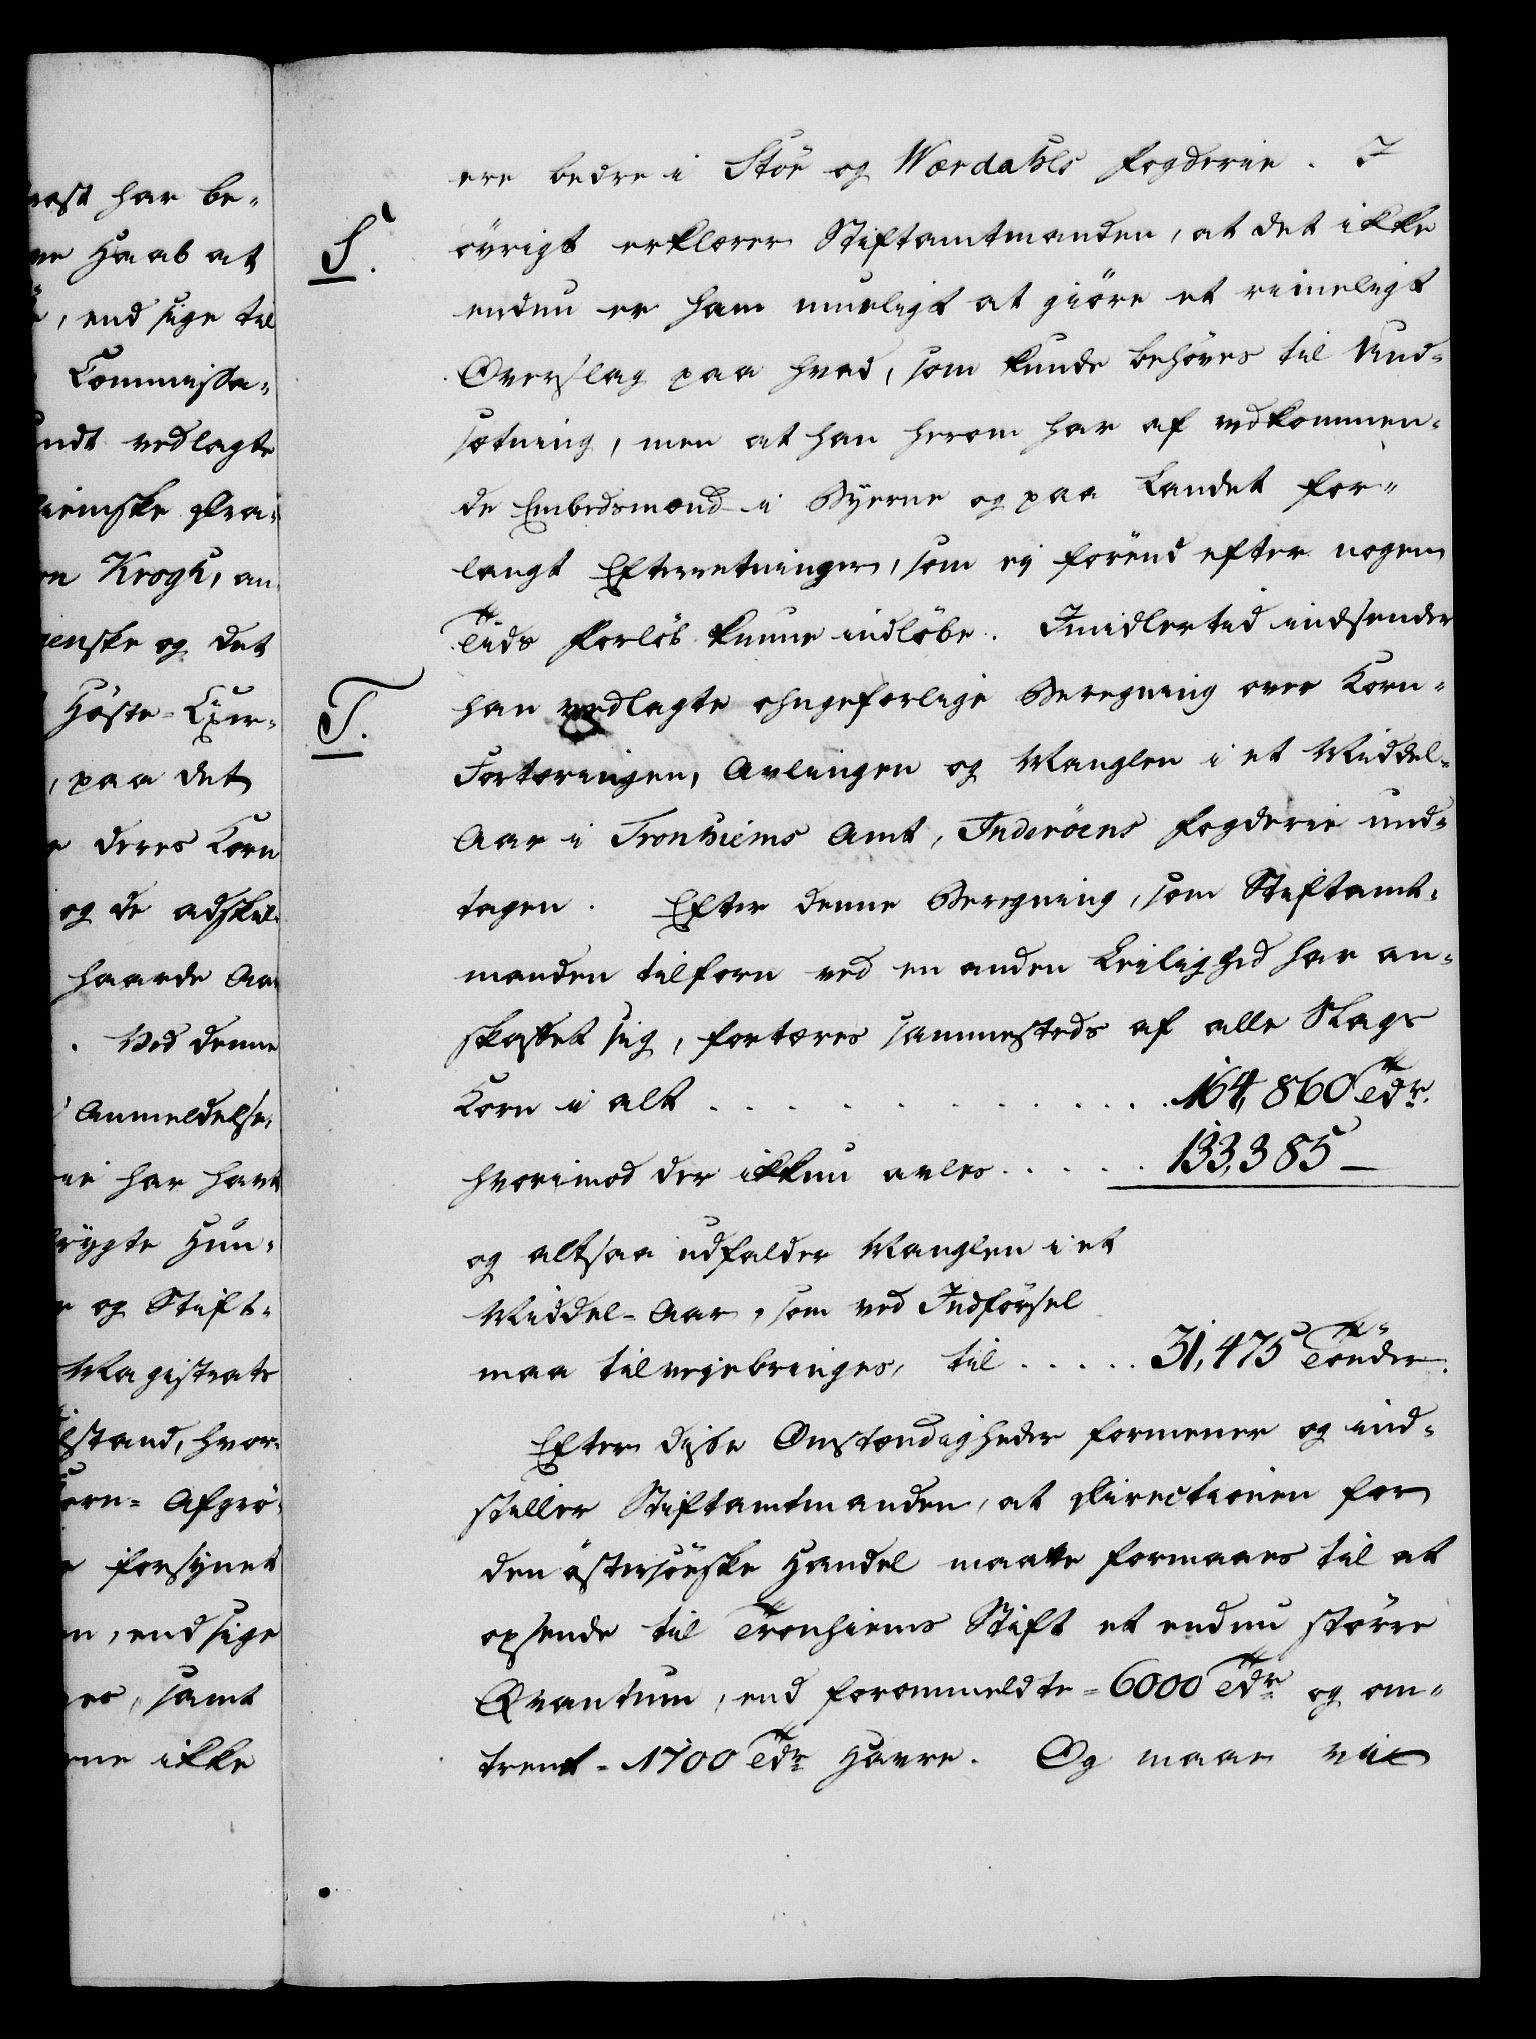 rost har be-
ve Haab at
, end sige til
Commissa-
ndt vedlagte
iemske Pra-
on Krogh, an-
enske og det
Höste-Exer-
, paa det
deres Korn
og de adskil-
haarde Aar
. Ved denne
Anmeldelse,
har havt
rygte Hun-
og Stift-
Magistrats
stand, hvor-
orn- Afgrö-
forsynet
n, end sige
es, samt
rne ikke
ere bedre i Stör og Wærdahls Fogderie. I
S.
övrigt erklærer Stiftamtmanden, at det ikke
endnu er ham mueligt at giöre et rimeligt
Overslag paa hvad, som kunde behöves til Und-
sætning, men at han herom har af vedkommen-
de Embedsmænd i Byerne og paa Landet for-
langt Efterretninger, som ej forënd efter nogen
Tids Forlöb kunne indlöbe. Imidlertid indsender
T.
han vedlagte ohngeforlige Beregning over Korn-
Fortæringen, Avlingen og Manglen i et Middel-
Aar i Tronhiems Amt, Inderöens Fogderie und-
tagen. Efter denne Beregning, som Stiftamt-
manden tilforn ved en anden Leilighed har an-
skaffet sig, fortæres sammesteds af alle Slags
Korn i alt . . . . . . . . . . 164,860 Tdr.
hvorimod der ikkun avles . . . . . 133,385 —
og altsaa udfalder Manglen i et
Middel-Aar, som ved Indförsel
maa tilvejebringes, til . . . . . 31,475 Tönder.
Efter disse Omstændigheder formener og ind-
stiller Stiftamtmanden, at Directionen for
den östersöiske Handel maatte formaaes til at
opsende til Tronhiems Stift et endnu större
Qvantum, end forommeldte = 6000 Tdr og om-
trent = 1700 Tdr Havre. Og maae vi